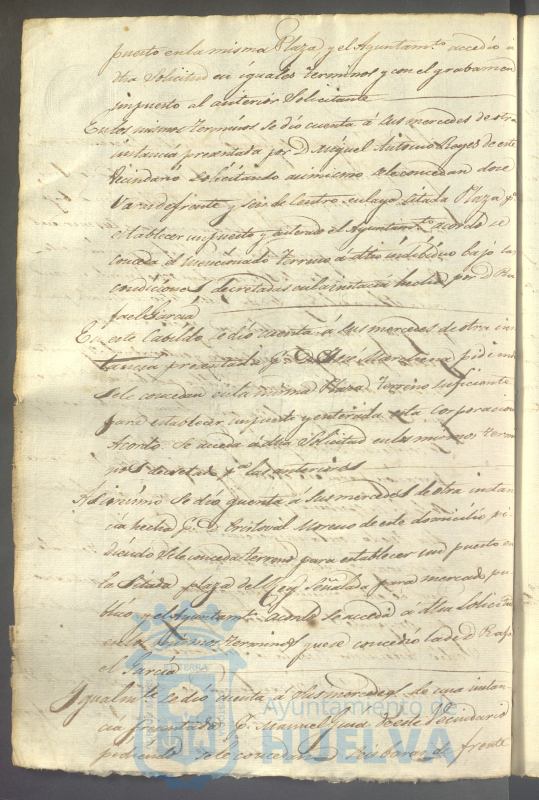 puesto en la misma Plaza y el Ayuntam.to accedió á
dha Solicitud en iguales terminos y con el grabamen
impuesto al anterior Solicitante
En los mismos terminos se dio cuenta á sus mercedes de otra
instancia presentada por D. Miguel Antonio Reyes de este
Vecindario solicitando asimismo se le concedan doce
Varas de frente y seis de Centro en la ya citada Plaza p.a
establecer un puesto y enterado el Ayuntam.to acordó se
conceda el mencionado terreno á dho individuo bajo las
condiciones decretadas en la instancia hecha por D. Ra
fael Garcia
En este Cabildo se dio cuenta á sus mercedes de otra ins
tancia presentada p.r D. José pidiendo
se le concedan en la misma Plaza terreno suficiente
para establecer un puesto y enterada esta Corporacion
Acordó Se acceda á dha Solicitud en los mismos termi
nos decretados p.a las anteriores
Asimismo se dio quenta á sus mercedes de otra instan
cia hecha p.r D. Cristoval Moreno de este domicilio pi
diendo se le conceda terreno para establecer un puesto en
la citada plaza del Rey Señalada para mercado pu
blico y el Ayuntam.to acordó se accedió á dha Solicitud
en los mismos terminos que se concedio la de D. Rafa
el Garcia
Igualm.te se dio cuenta á sus mercedes de una instan
cia presentada p.r Manuel de este Vecindario
pidiendo se le concedan seis baras de frente
Ayuntamiento de
HUELVA